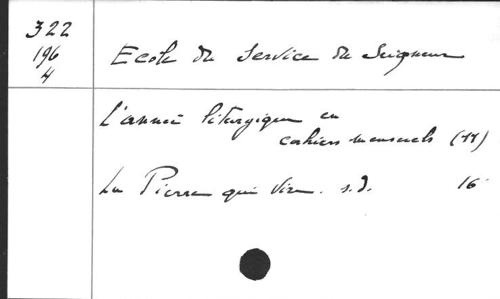 322
196
4
Ecole du Service du Seigneur
L'année liturgique en
cahiers mensuels (11)
La Pierre qui Vire. s.d. 16